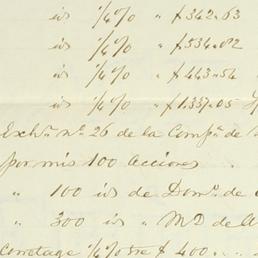 id ¼% " $ 342.63
id ¼% " $ 534.82
id ¼% " $ 443.54
id ¼% " $ 1.337.05
Exchn. nº 26 de la Compª de
por mis 100 acciones
" 100 id de Domº. de
" 300 id " MD de A
Corretage ¼% sre $ 400